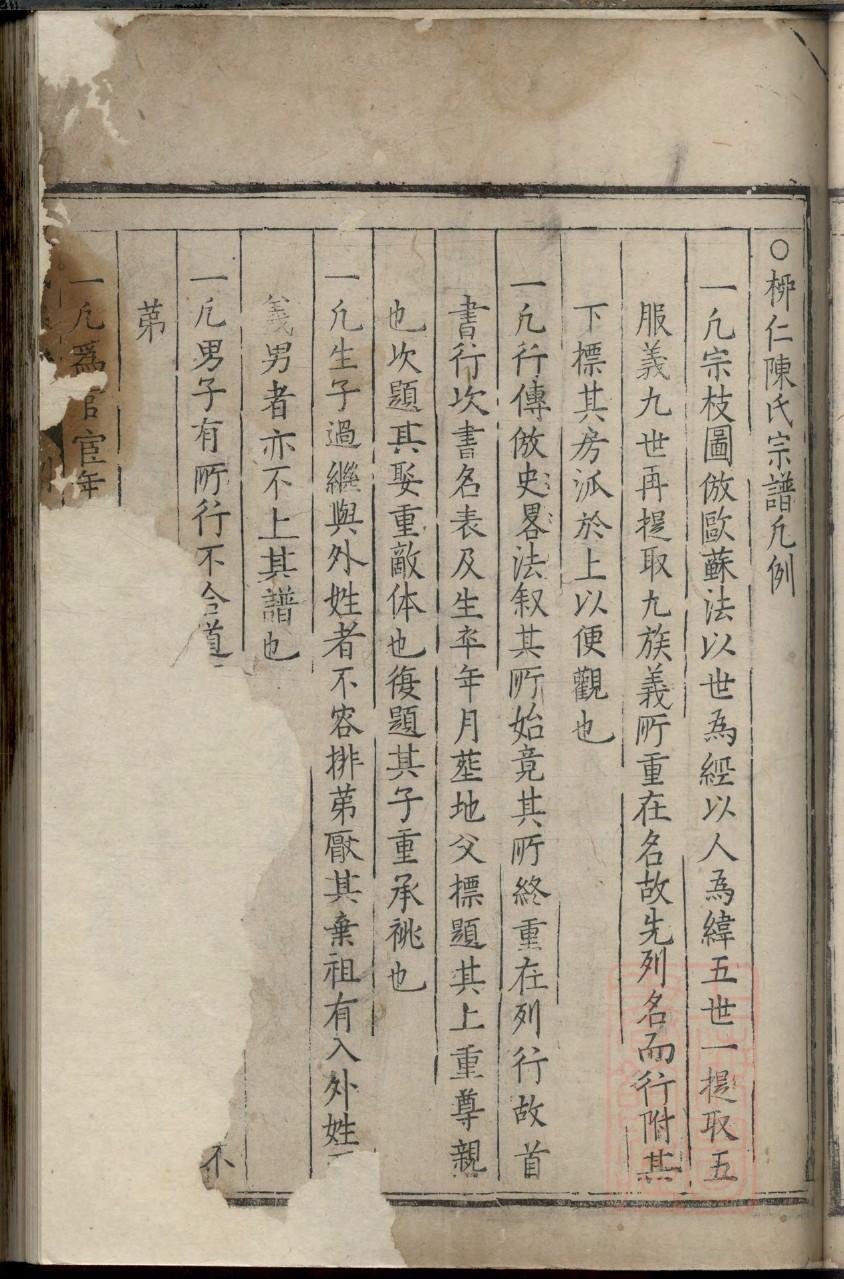 ○柳仁陳氏宗譜凢例
一凢宗枝圖倣歐蘇法以世為經以人為緯五世一提取五
服義九世再提取九族義所重在名故先列名而行附其
下標其房派於上以便觀也
一凢行傳倣史畧法叙其所始竟其所終重在列行故首
書行次書名表及生卒年月塟地父標題其上重尊親
也次題其娶重敵体也復題其子重承祧也
一凢生子過繼與外姓者不容排苐厭其棄祖有入外姓
義男者亦不上其譜也
一凢男子有所行不合道 不
苐
一凢爲官宦年